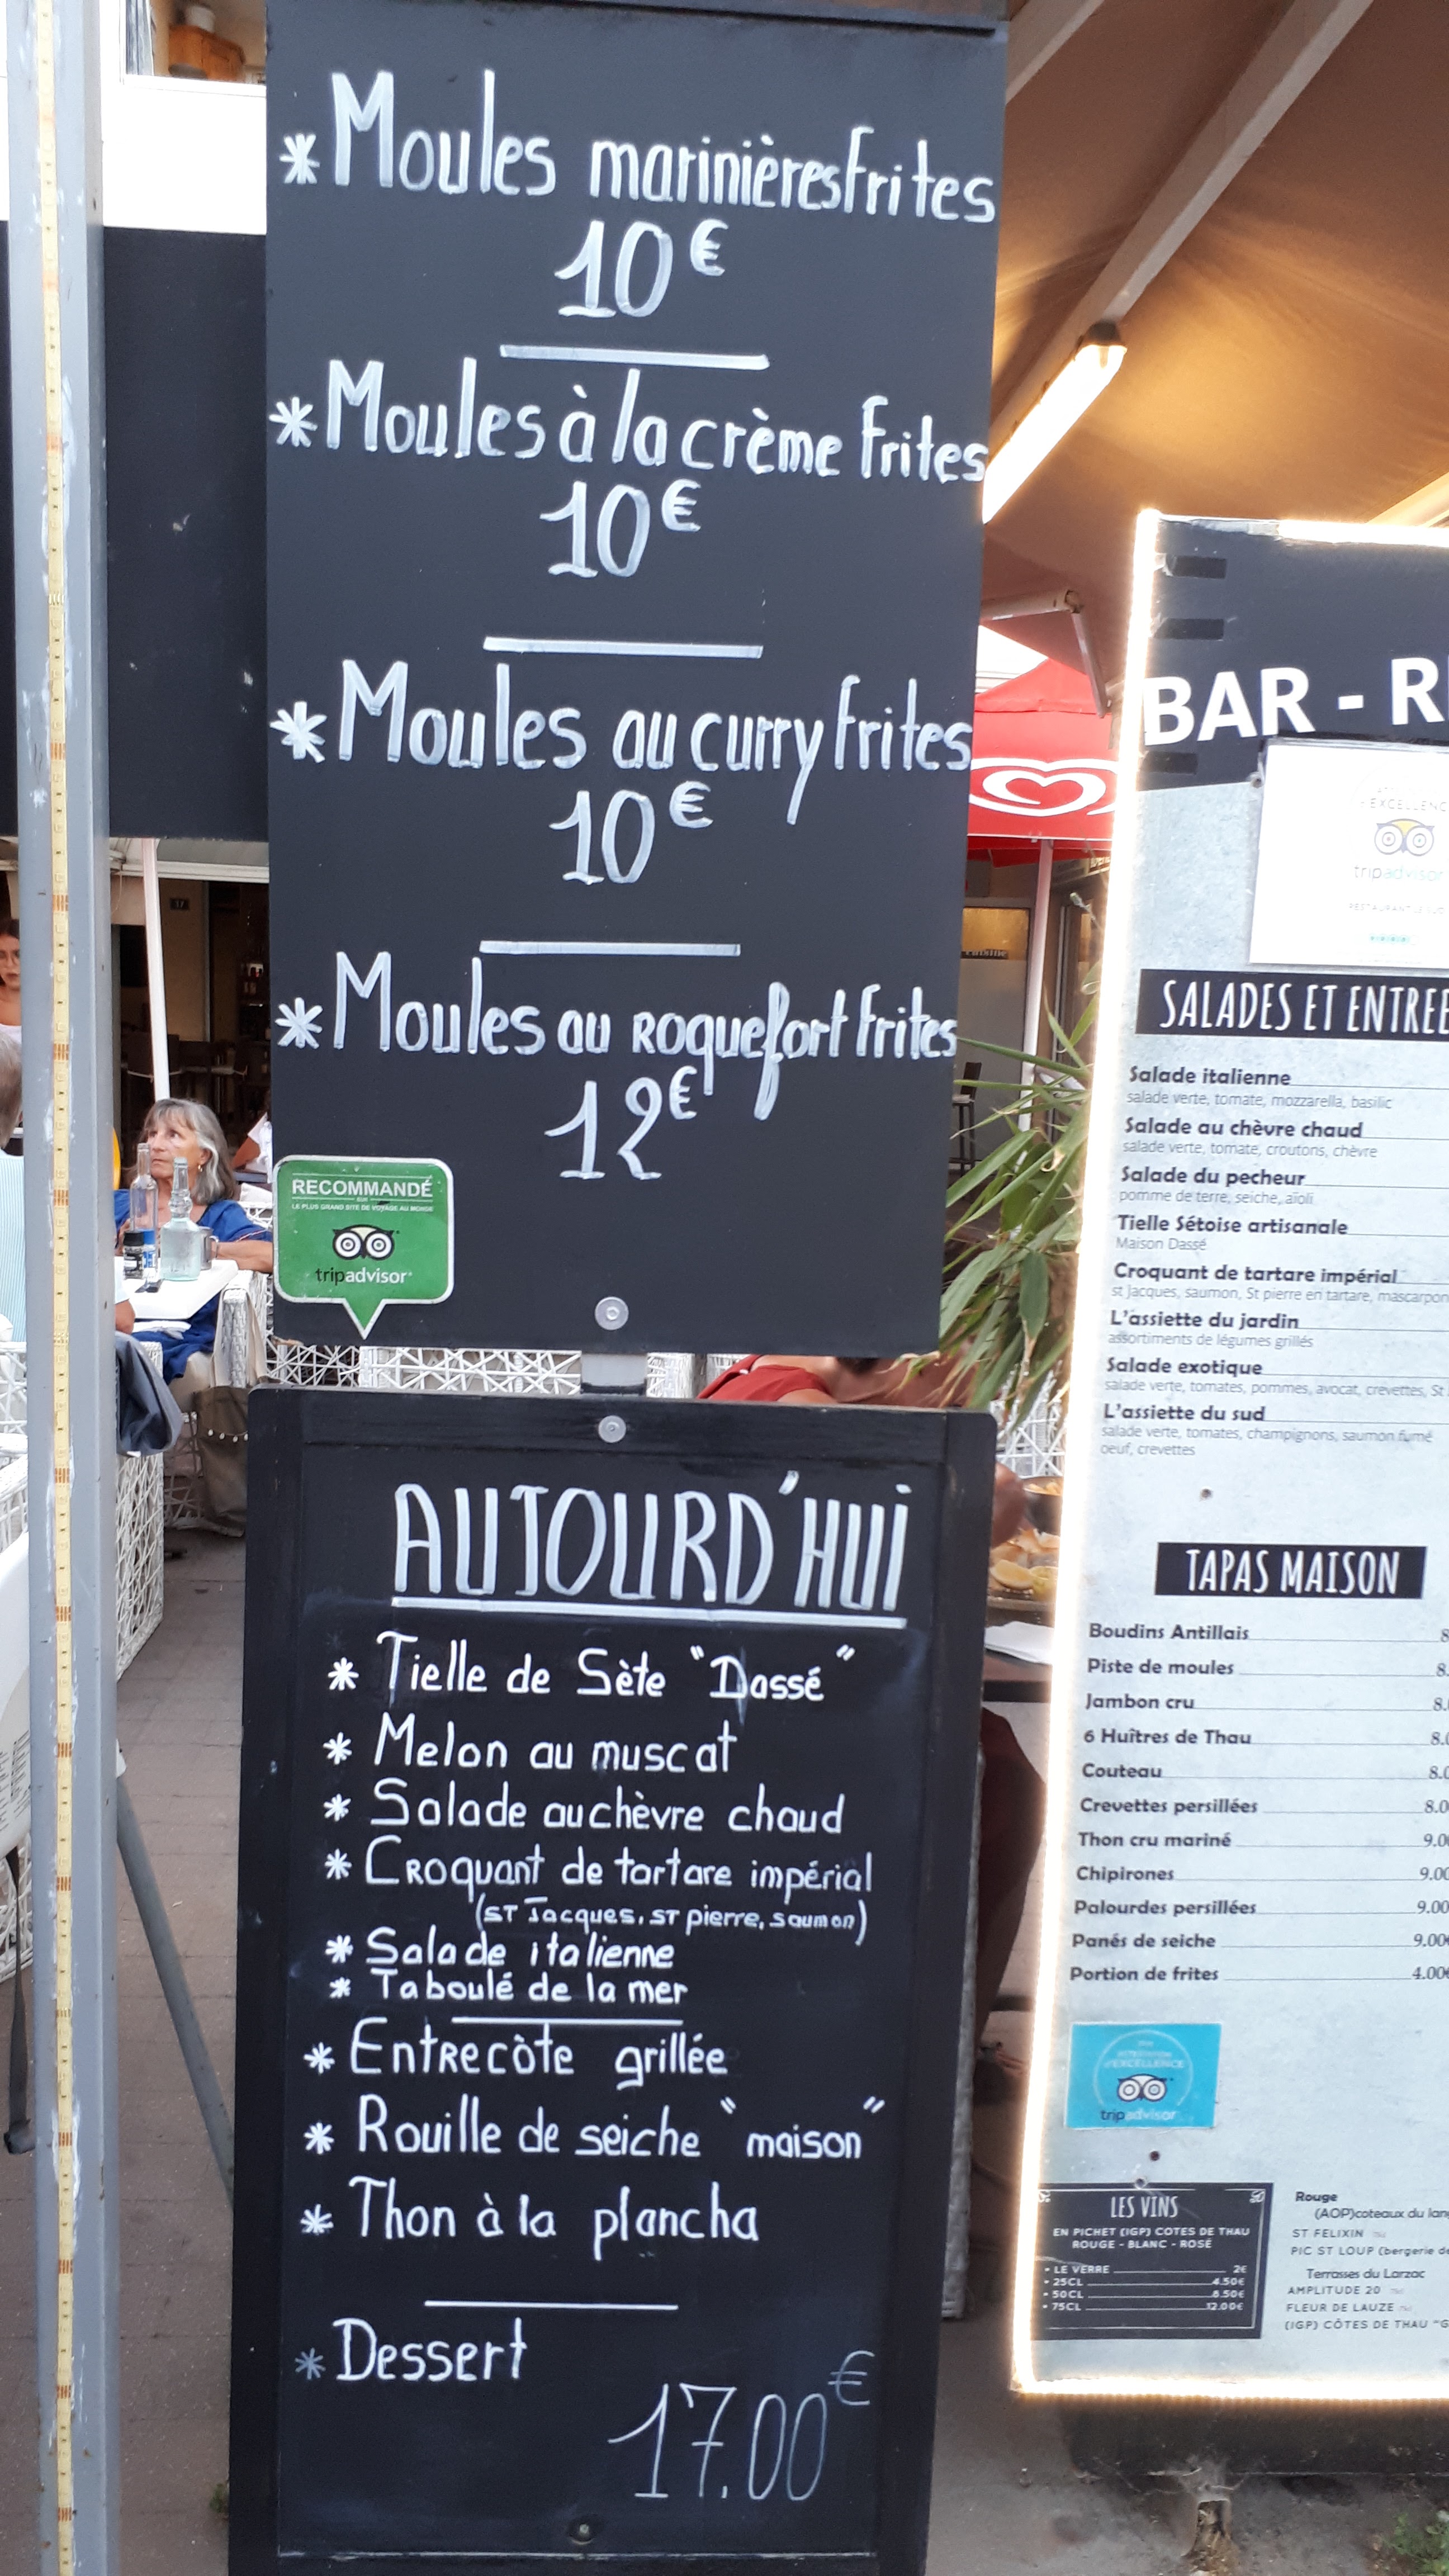 *Moules marinières Frites
10€
*Moules à la crème Frites
10€
*Moules au curry Frites
10€
*Moules au Roquefort Frites
12€
RECOMMANDÉ
SUR
LE PLUS GRAND SITE DE VOYAGE AU MONDE
tripadvisor
AUJOURD'HUI
* Tielle de Sète "Dassé"
* Melon au muscat
* Salade au chèvre chaud
* Croquant de tartare impérial
(ST Jacques, ST pierre, saumon)
* Salade italienne
* Taboulé de la mer
* Entrecôte grillée
* Rouille de seiche "maison"
* Thon à la plancha
* Dessert
17.00€
BAR - R
EXCELLENC
tripadvisor
SALADES ET ENTREE
Salade italienne
salade verte, tomate, mozzarella, basilic
Salade au chèvre chaud
salade verte, tomate, croutons, chèvre
Salade du pecheur
pomme de terre, seiche, aïoli
Tielle Sétoise artisanale
Maison Dassé
Croquant de tartare impérial
st Jacques, saumon, St pierre en tartare, mascarpon
L'assiette du jardin
assortiments de légumes grillés
Salade exotique
salade verte, tomates, pommes, avocat, crevettes, St
L'assiette du sud
salade verte, tomates, champignons, saumon fumé
oeuf, crevettes
TAPAS MAISON
Boudins Antillais 8
Piste de moules 8.
Jambon cru 8.
6 Huîtres de Thau 8.0
Couteau 8.0
Crevettes persillées 8.0
Thon cru mariné 9.0
Chipirones 9.00
Palourdes persillées 9.00
Panés de seiche 9.00€
Portion de frites 4.00€
EXCELLENCE
tripadvisor
LES VINS
EN PICHET (IGP) COTES DE THAU
ROUGE - BLANC - ROSÉ
• LE VERRE 2€
• 25CL 4.50€
• 50CL 8.50€
• 75CL 12.00€
Rouge
(AOP)coteaux du lan
ST FELIXIN
PIC ST LOUP (bergerie de
Terrasses du Larzac
AMPLITUDE 20
FLEUR DE LAUZE
(IGP) CÔTES DE THAU "G